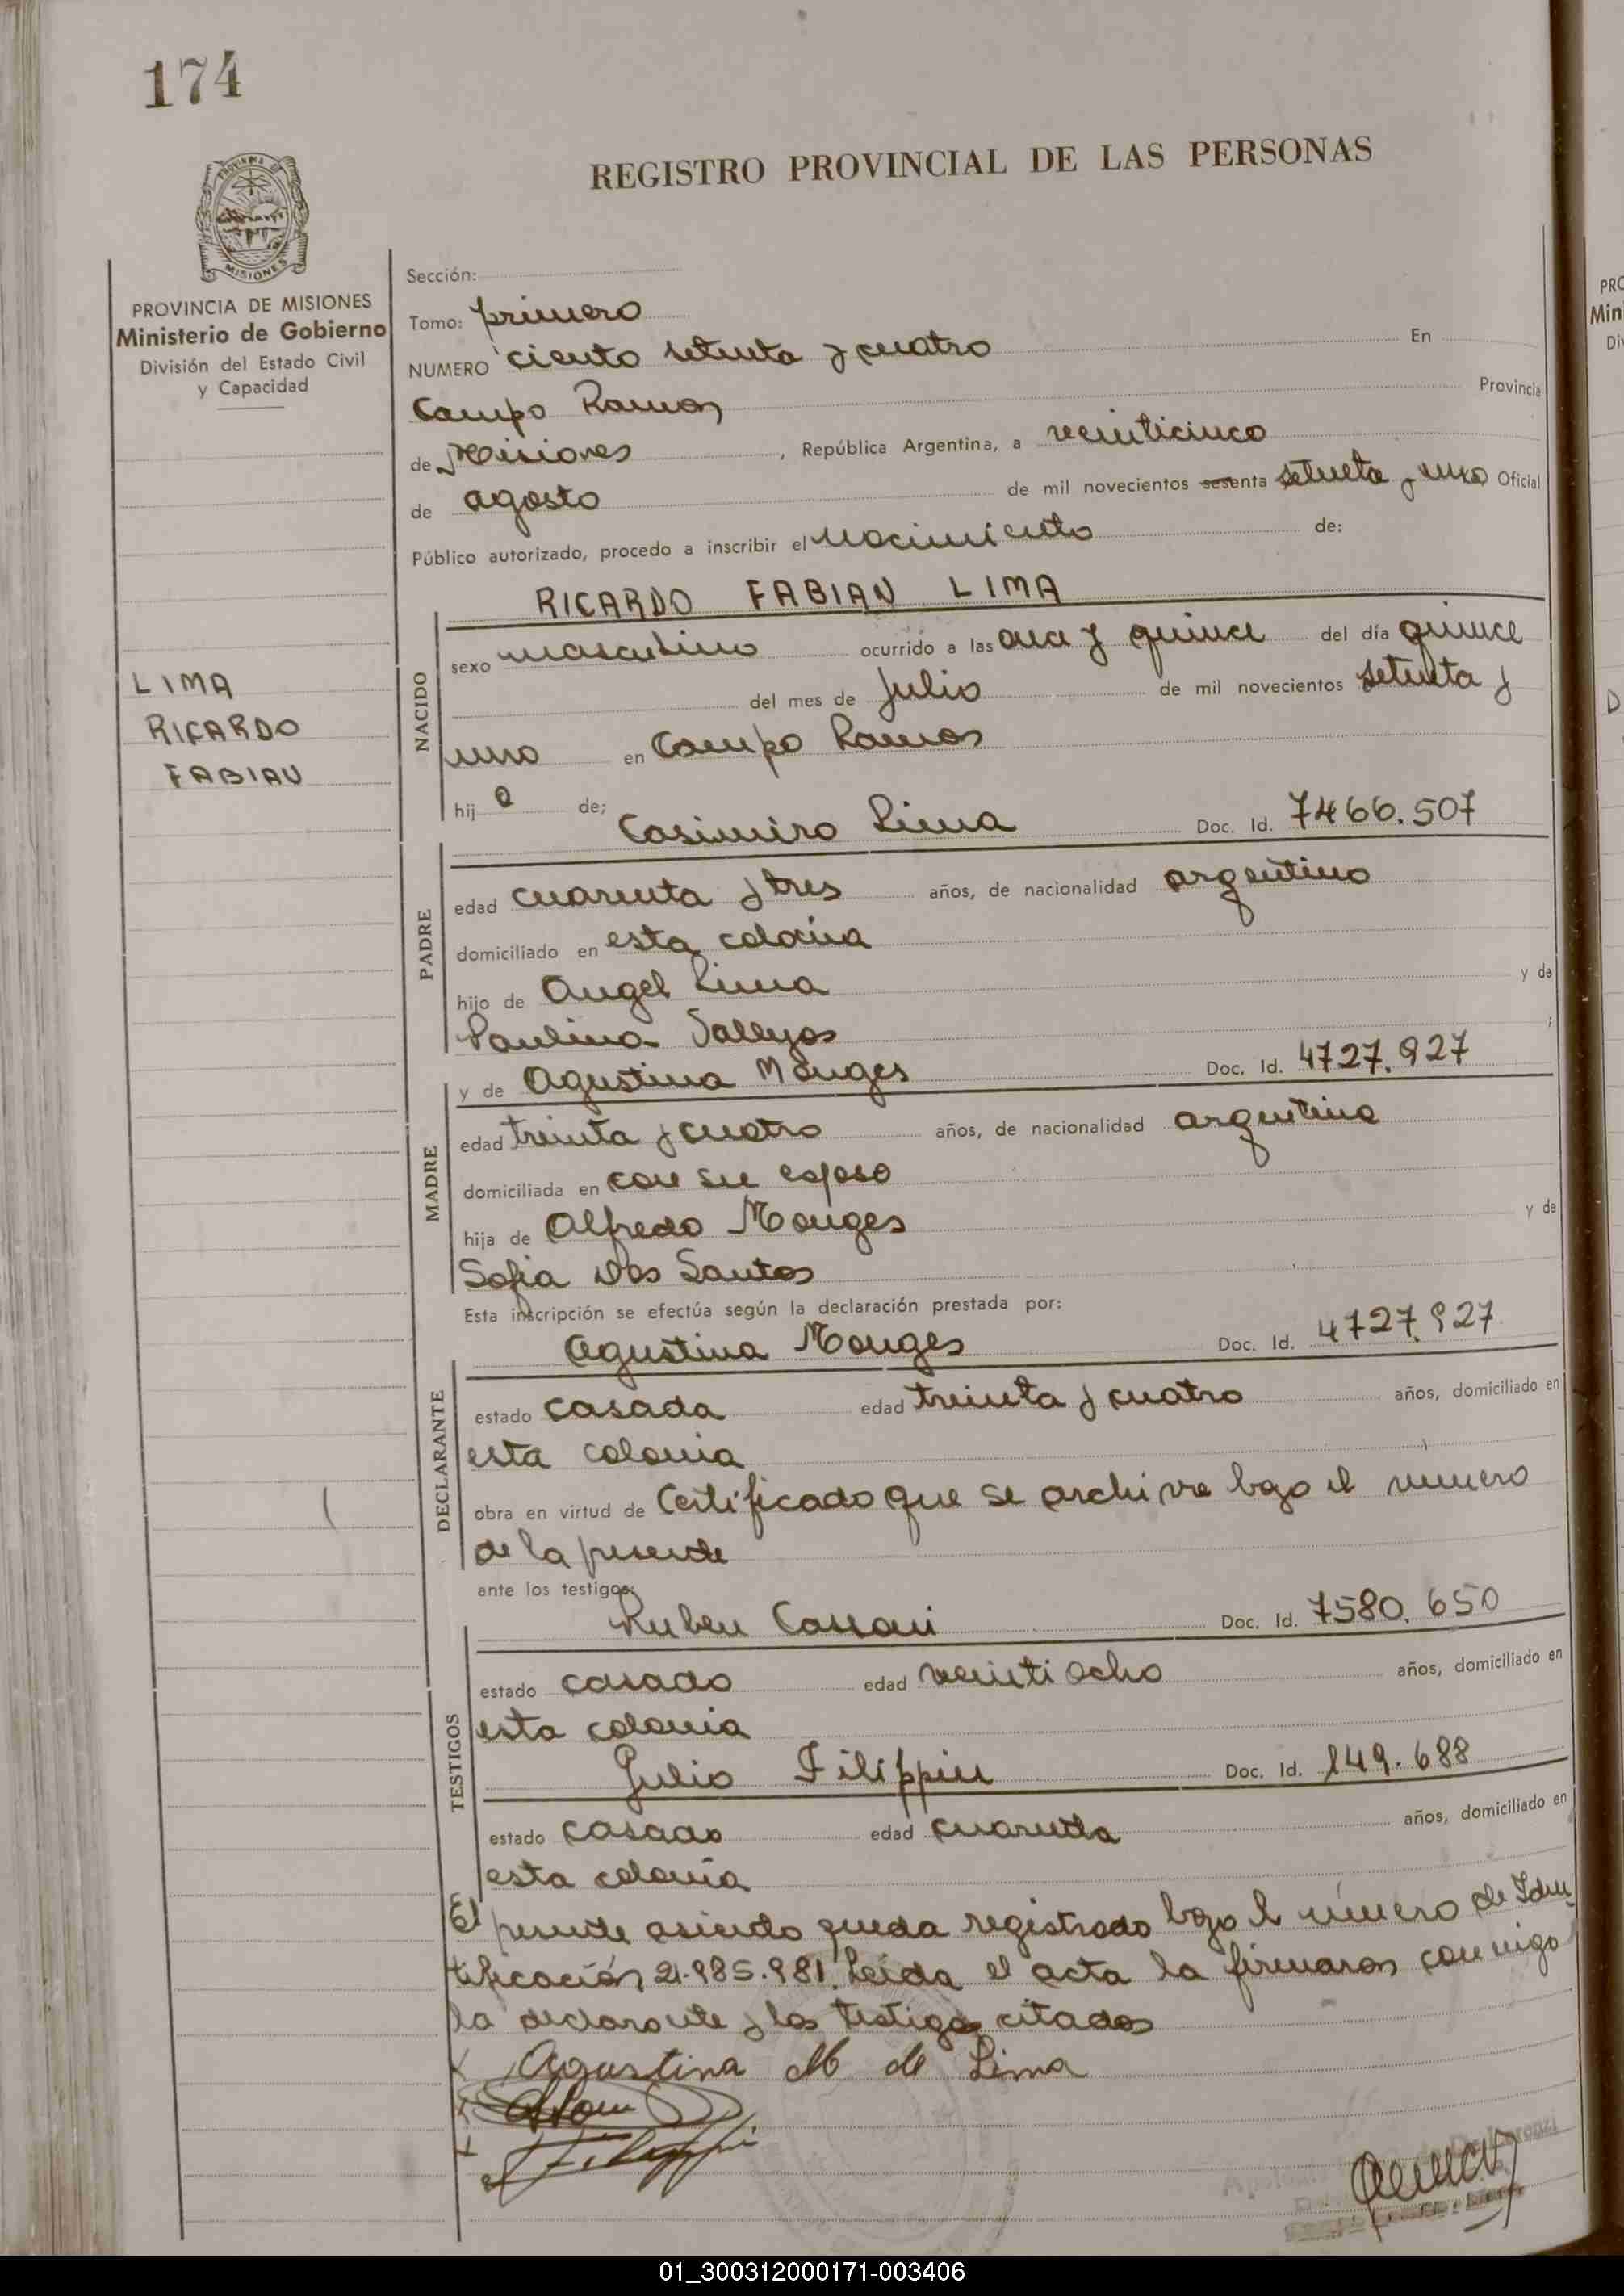 174
REGISTRO PROVINCIAL DE LAS PERSONAS
PROVINCIA DE MISIONES
MISIONES
PROVINCIA DE MISIONES
Ministerio de Gobierno
División del Estado Civil
y Capacidad
LIMA
RICARDO
FABIAN
Sección:
Tomo: primero
NUMERO ciento setenta y cuatro En
Campo Ramos Provincia
de Misiones , República Argentina, a veinticinco
de agosto de mil novecientos sesenta setenta y uno Oficial
Público autorizado, procedo a inscribir el Nacimiento de:
RICARDO FABIAN LIMA
NACIDO
sexo masculino ocurrido a las una y quince del día quince
del mes de Julio de mil novecientos setenta y
uno en Campo Ramos
hij o de;
Casimiro Lima Doc. Id. 7466.507
PADRE
edad cuarenta y tres años, de nacionalidad argentino
domiciliado en esta colonia
hijo de Angel Lima y de
Paulina Vallejos ;
y de Agustina Monges Doc. Id. 4727.927
MADRE
edad treinta y cuatro años, de nacionalidad argentina
domiciliada en con su esposo
hija de Alfredo Monges y de
Sofia Dos Santos
Esta inscripción se efectúa según la declaración prestada por:
Agustina Monges Doc. Id. 4727.927
DECLARANTE
estado casada edad treinta y cuatro años, domiciliado en
esta colonia
obra en virtud de Certificado que se archiva bajo el numero
de la presente
ante los testigos:
Ruben Doc. Id. 7580.650
TESTIGOS
estado casado edad veintiocho años, domiciliado en
esta colonia
Julio Filippin Doc. Id. 149.688
estado casado edad cuarenta años, domiciliado en
esta colonia
El presente asiento queda registrado bajo el número de Iden
tificación 21.985.981. Leida el acta la firmaron conmigo
la declarante y los testigos citados
x Agustina M de Lima
x
x Filippin
PRO
Min
Di
01_300312000171-003406